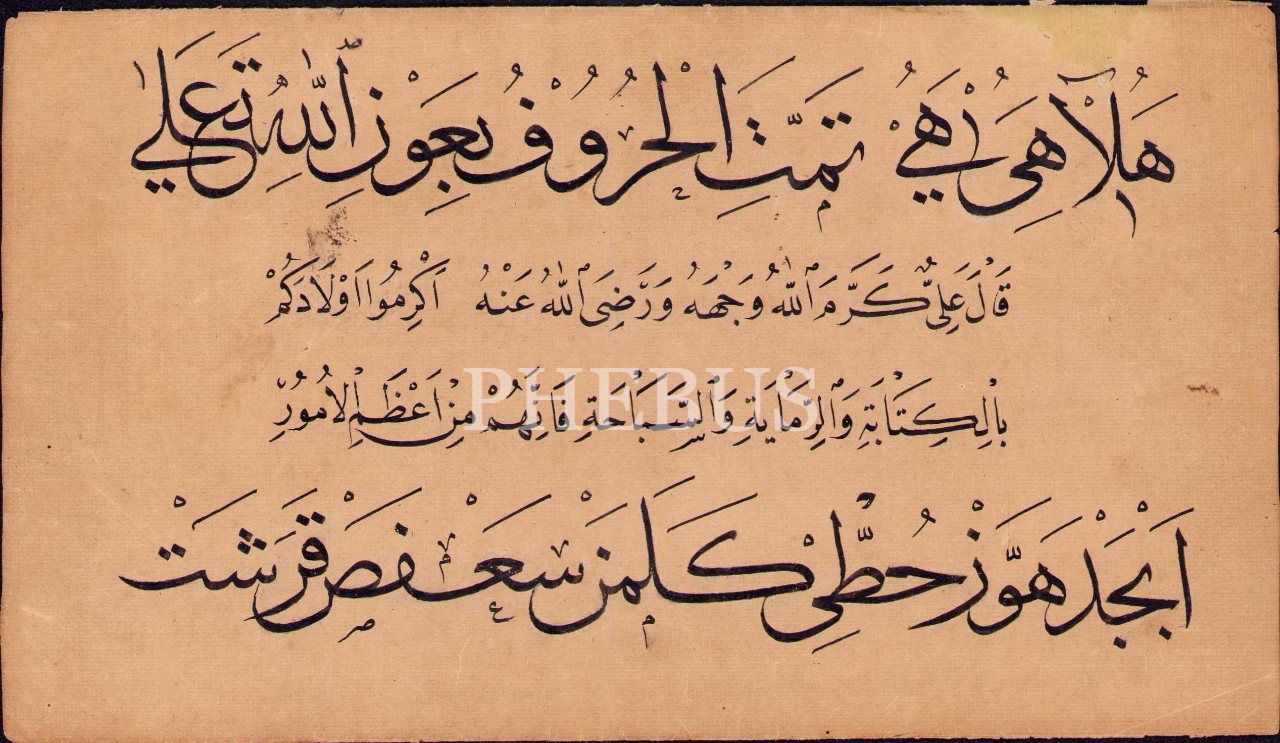 هُلَاهَىِ نْهَىُ تَمَّتِ الْحُرُوفُ بِعَوْنِ ٱللهِ تَعَالَى
قَالَ عَلِىٌّ كَرَّمَ ٱللهُ وَجْهَهُ وَرَضِىَ ٱللهُ عَنْهُ اَكْرِمُوا اَوْلَادَكُمْ
PHEBUS
بِالْكِتَابَةِ وَٱلرِّمَايَةِ وَٱلسَّبَاحَةِ فَاِنَّهُمْ مِنْ اَعْظَمِ الْاُمُورِ
اَبْجَدْ هَوَّزْ حُطِّى كَلَمَنْ سَعْفَصْ قَرَشَتْ